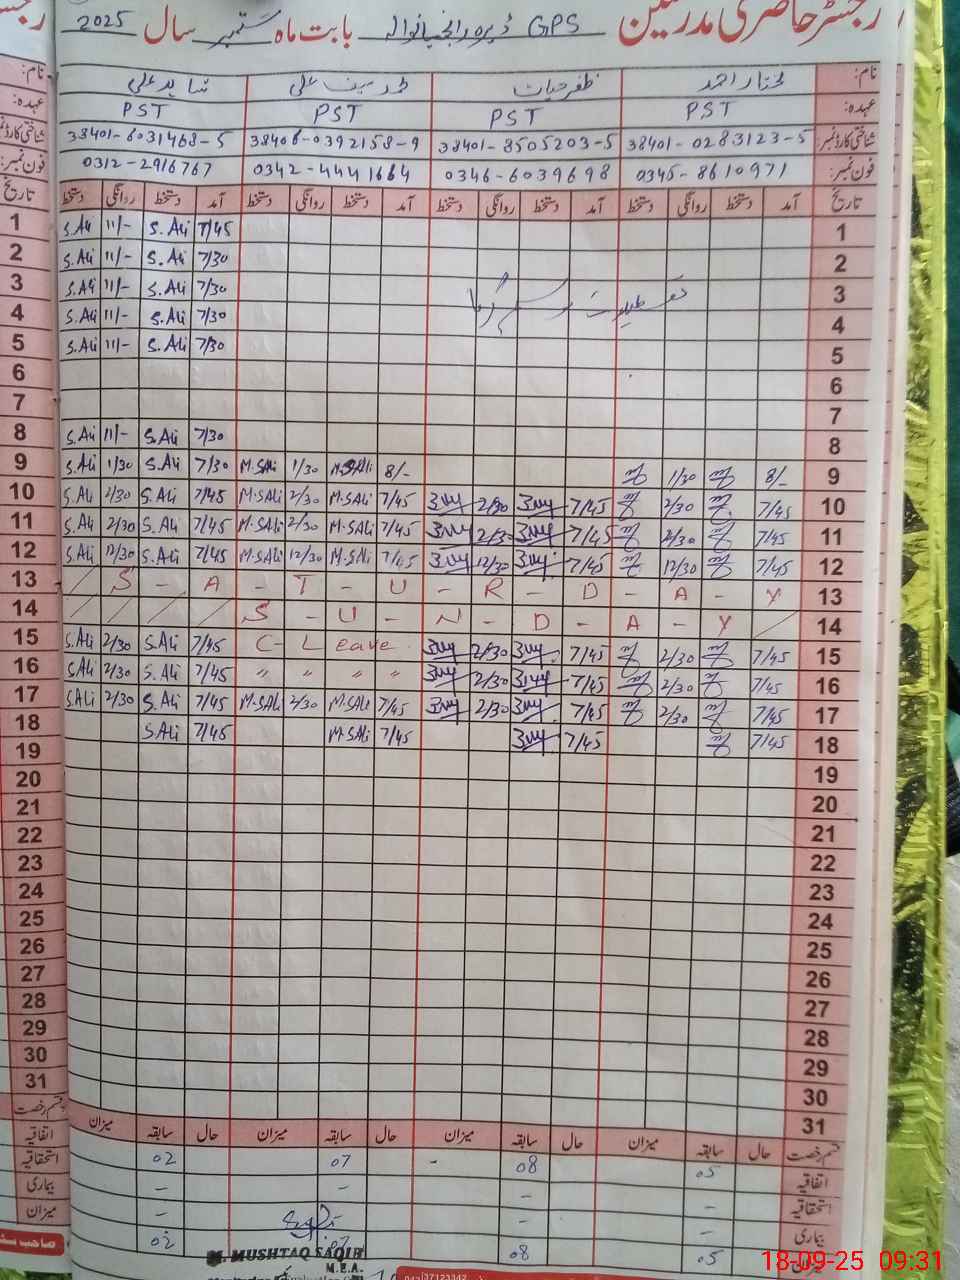 رجسٹر حاضری مدرسین GPS ڈیرہ رانجھیانوالہ بابت ماہ ستمبر سال 2025
نام: مختار احمد ظفر حیات محمد سیف علی شاہد علی
عہدہ: PST PST PST PST
شناختی کارڈ نمبر: 38401-0283123-5 38401-8505203-5 38406-0392158-9 38401-6031468-5
فون نمبر: 0345-8610971 0346-6039698 0342-4441664 0312-2916767
تاریخ آمد دستخط روانگی دستخط آمد دستخط روانگی دستخط آمد دستخط روانگی دستخط آمد دستخط روانگی دستخط تاریخ
1 S.Ali 11/- S.Ali 7/45 1
2 S.Ali 11/- S.Ali 7/30 2
3 S.Ali 11/- S.Ali 7/30 تعطیلات موسم گرما 3
4 S.Ali 11/- S.Ali 7/30 4
5 S.Ali 11/- S.Ali 7/30 5
6 6
7 7
8 S.Ali 11/- S.Ali 7/30 8
9 S.Ali 1/30 S.Ali 7/30 M.SAli 1/30 M.SAli 8/- 1/30 8/- 9
10 S.Ali 2/30 S.Ali 7/45 M.SAli 2/30 M.SAli 7/45 2/30 7/45 2/30 7/45 10
11 S.Ali 2/30 S.Ali 7/45 M.SAli 2/30 M.SAli 7/45 2/30 7/45 2/30 7/45 11
12 S.Ali 12/30 S.Ali 7/45 M.SAli 12/30 M.SAli 7/45 12/30 7/45 12/30 7/45 12
13 S - A - T - U - R - D - A - Y 13
14 S - U - N - D - A - Y 14
15 S.Ali 2/30 S.Ali 7/45 C - Leave 2/30 7/45 2/30 7/45 15
16 S.Ali 2/30 S.Ali 7/45 " " " " 2/30 7/45 2/30 7/45 16
17 S.Ali 2/30 S.Ali 7/45 M.SAli 2/30 M.SAli 7/45 2/30 7/45 2/30 7/45 17
18 S.Ali 7/45 M.SAli 7/45 7/45 7/45 18
19 19
20 20
21 21
22 22
23 23
24 24
25 25
26 26
27 27
28 28
29 29
30 30
31 31
قسم رخصت حال سابقہ میزان حال سابقہ میزان حال سابقہ میزان حال سابقہ میزان قسم رخصت
اتفاقیہ 05 08 - 07 02 اتفاقیہ
استحقاقیہ - - - - استحقاقیہ
بیماری - - - بیماری
05 08 07 02 میزان
M. MUSHTAQ SAQIB
M.E.A.
37123342
18-09-25 09:31